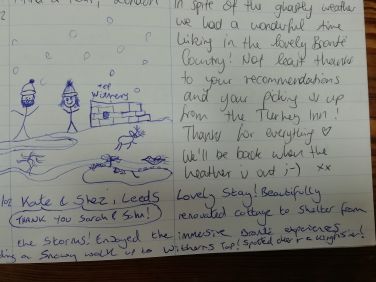 London
in spite of the ghastly weather
we had a wonderful time
hiking in the lovely Brontë
Country! Not least thanks
to your recommendations
and your picking us up
from the Turkey Inn!
Thanks for everything ♡
We'll be back when the
weather's out ;-) xx
Top
Withens
Kate & Shez, Leeds
THANK YOU Sarah &
Lovely Stay! Beautifully
renovated cottage to shelter from
the storms! Enjoyed the immersive Brontë experience
a snowy walk up to Withens Top! Spotted deer &